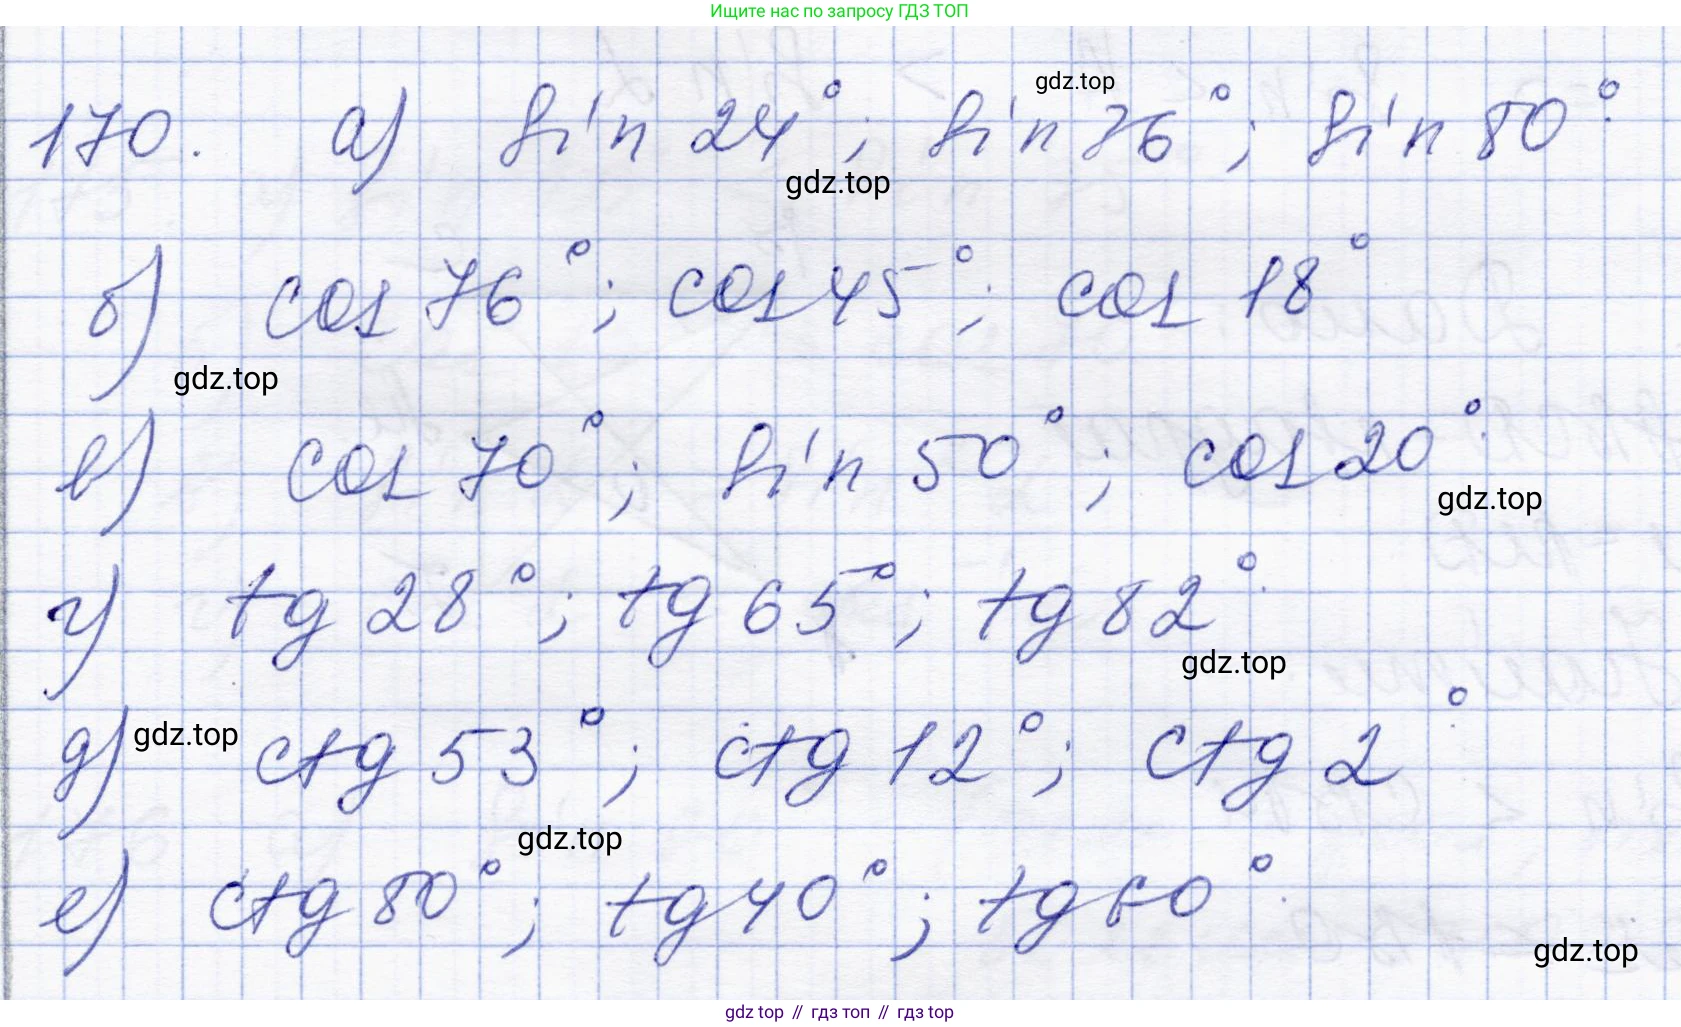 Ищите нас по запросу ГДЗ ТОП
gdz.top
170. а) sin 24°; sin 36°; sin 80°.
gdz.top
б) cos 76°; cos 45°; cos 18°
gdz.top
в) cos 70°; sin 50°; cos 20°.
gdz.top
г) tg 28°; tg 65°; tg 82°.
gdz.top
д) ctg 53°; ctg 12°; ctg 2°.
gdz.top
gdz.top
е) ctg 80°; tg 40°; tg 60°.
gdz.top
gdz top // гдз топ // gdz.top